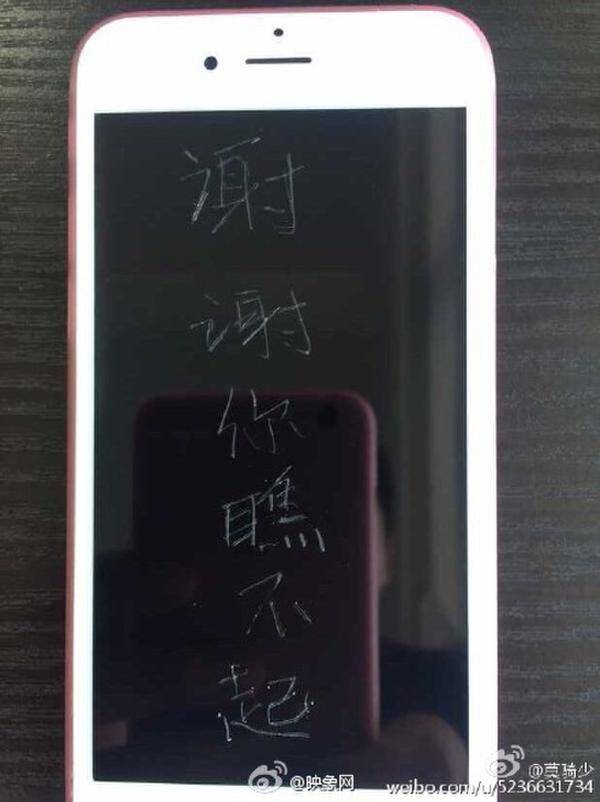 谢谢你瞧不起
@映象网
@莫琦少
weibo.com/u/5236631734